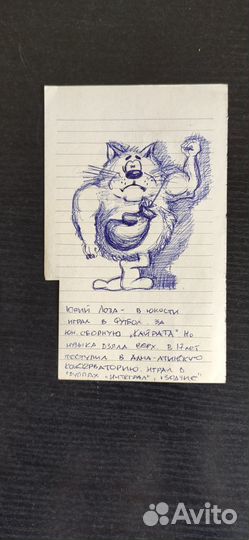 ЮРИЙ ЛОЗА - В ЮНОСТИ
ИГРАЛ В ФУТБОЛ ЗА
ЮН. СБОРНУЮ „КАЙРАТА" НО
МУЗЫКА ВЗЯЛА ВЕРХ. В 17 ЛЕТ
ПОСТУПИЛ В АЛМА-АТИНСКУЮ
КОНСЕРВАТОРИЮ. ИГРАЛ В
ГРУППАХ „ИНТЕГРАЛ", „ЗОДЧИЕ"
Avito